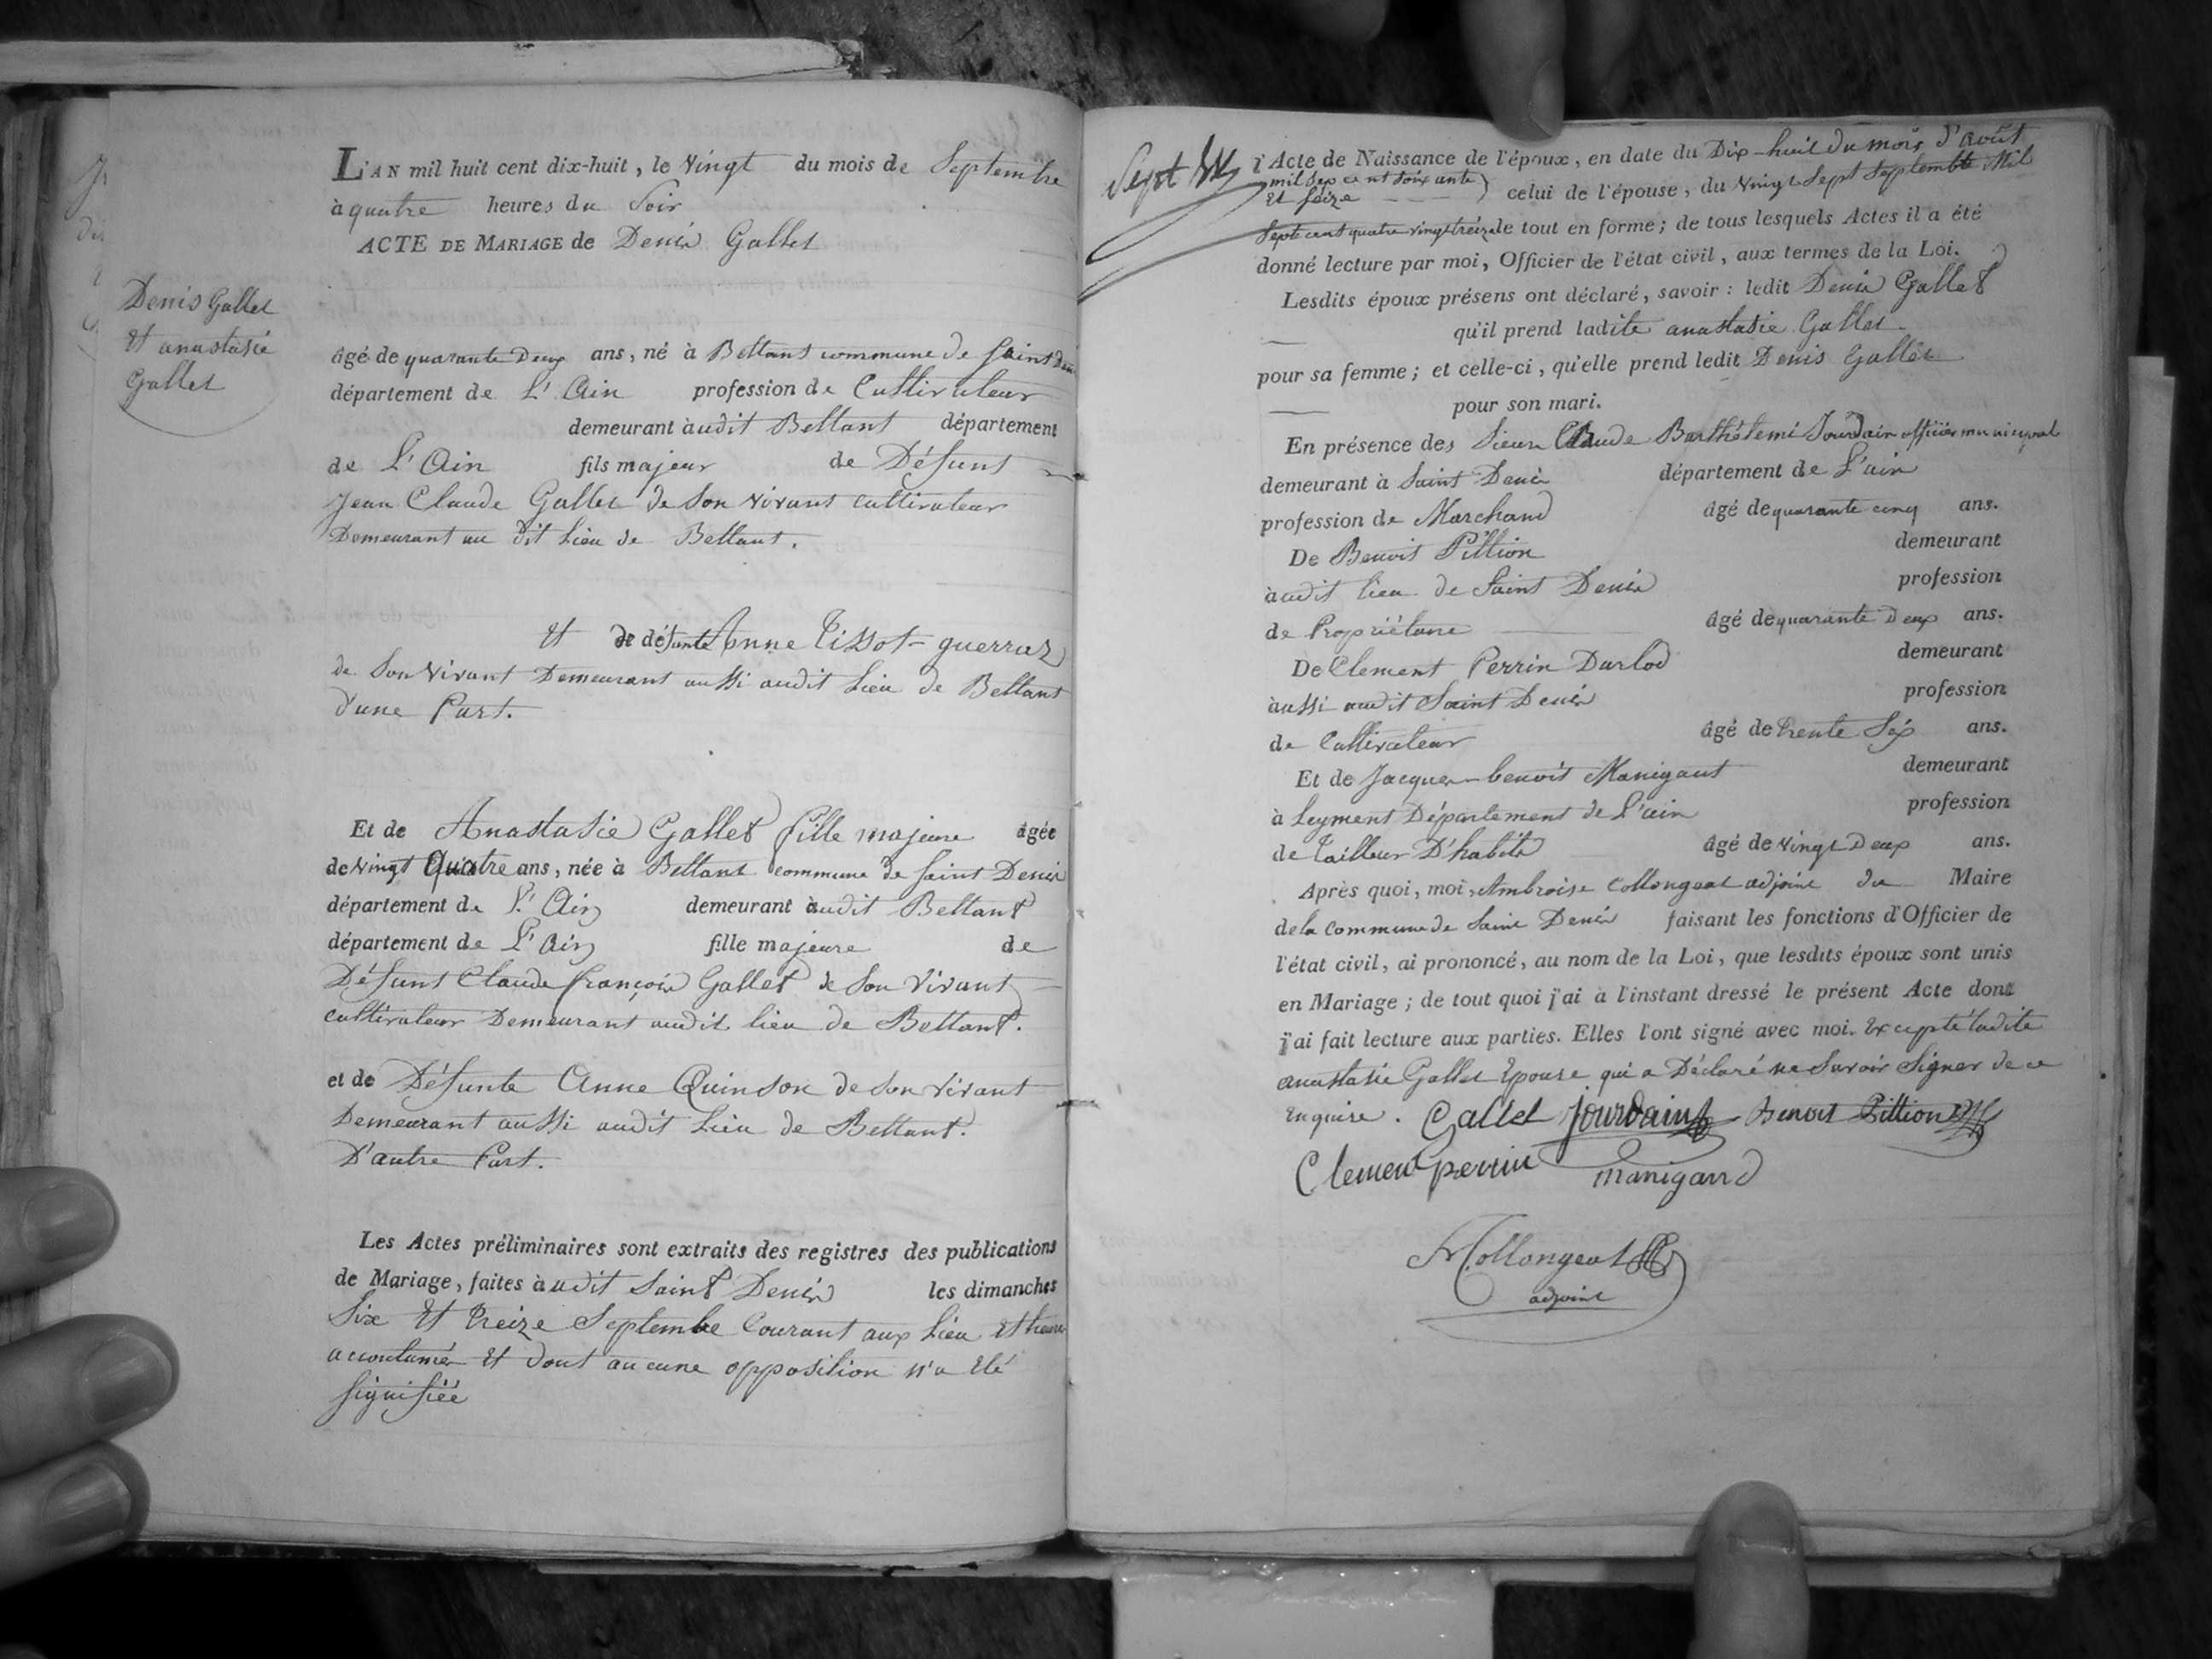 Denis Gallet
et anastasie
Gallet
L'AN mil huit cent dix-huit, le vingt du mois de Septembre
à quatre heures du Soir
ACTE DE MARIAGE de Denis Gallet
âgé de quarante Deux ans, né à Bettant commune de Saint Denis
département de L'Ain profession de Cultivateur
demeurant audit Bettant département
de L'Ain fils majeur de Défunt
Jean Claude Gallet de Son vivant cultivateur
Demeurant au dit Lieu de Bettant.
et de défunte Anne Tissot-guerraz
de Son vivant Demeurant aussi audit Lieu de Bettant
d'une Part.
Et de Anastasie Gallet fille majeure âgée
de vingt Quatre ans, née à Bettant commune de Saint Denis
département de L'Ain demeurant audit Bettant
département de L'Ain fille majeure de
Défunt Claude françois Gallet de Son vivant
cultivateur Demeurant audit lieu de Bettant.
et de Défunte Anne Quinson de Son vivant
Demeurant aussi audit Lieu de Bettant.
D'autre Part.
Les Actes préliminaires sont extraits des registres des publications
de Mariage, faites audit Saint Denis les dimanches
Six et treize Septembre Courant aux Lieu et heure
accoutumés et dont aucune opposition n'a été
signifiée
Sept
l'Acte de Naissance de l'époux, en date du Dix-huit du mois d'Août
mil Sep cent soixante
et seize celui de l'épouse, du vingt Sept Septembre Mil
Sept cent quatre vingt treize le tout en forme; de tous lesquels Actes il a été
donné lecture par moi, Officier de l'état civil, aux termes de la Loi.
Lesdits époux présens ont déclaré, savoir: ledit Denis Gallet
qu'il prend ladite anastasie Gallet
pour sa femme; et celle-ci, qu'elle prend ledit Denis Gallet
pour son mari.
En présence des Sieur Claude Barthélemi Jourdain officier municipal
demeurant à Saint Denis département de L'ain
profession de Marchand âgé de quarante cinq ans.
De Benoit Pittion demeurant
audit lieu de Saint Denis profession
de Propriétaire âgé de quarante Deux ans.
De Clement Perrin Durlod demeurant
aussi audit Saint Denis profession
de Cultivateur âgé de trente Six ans.
Et de Jacques-benoit Manigant demeurant
à Leyment Département de L'ain profession
de Tailleur D'habits âgé de vingt Deux ans.
Après quoi, moi, Ambroise Collongeat adjoint du Maire
de la Commune de Saint Denis faisant les fonctions d'Officier de
l'état civil, ai prononcé, au nom de la Loi, que lesdits époux sont unis
en Mariage; de tout quoi j'ai à l'instant dressé le présent Acte dont
j'ai fait lecture aux parties. Elles l'ont signé avec moi. Excepté ladite
anastasie Gallet Epouse qui a Déclaré ne Savoir Signer de ce
Enquise. Gallet Jourdain Benoit Pittion
Clement perrin manigand
Collongeat
adjoint